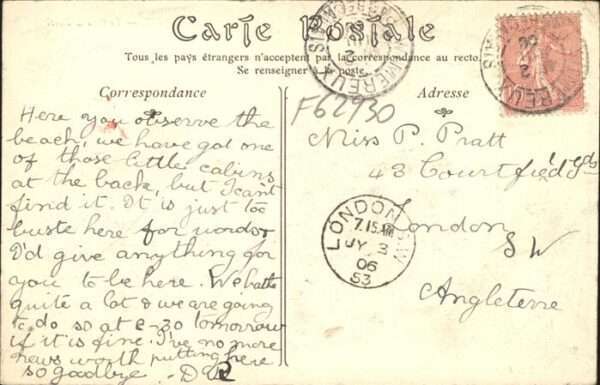 Carte Postale
Tous les pays étrangers n'acceptent pas la correspondance au recto.
Se renseigner à la poste.
Correspondance
Here you observe the
beach, we have got one
of those little cabins
at the back, but I can't
find it. It is just too
buste here for words
I'd give anything for
you to be here. We bathe
quite a lot & we are going
to do so at 2-30 tomorrow
if it is fine. I've no more
news worth putting here
so goodbye. D
F62930
Adresse
Miss P. Pratt
43 Courtfield Gds
London
SW
Angleterre
LONDON.S.W
7.15AM
JY 3
06
53